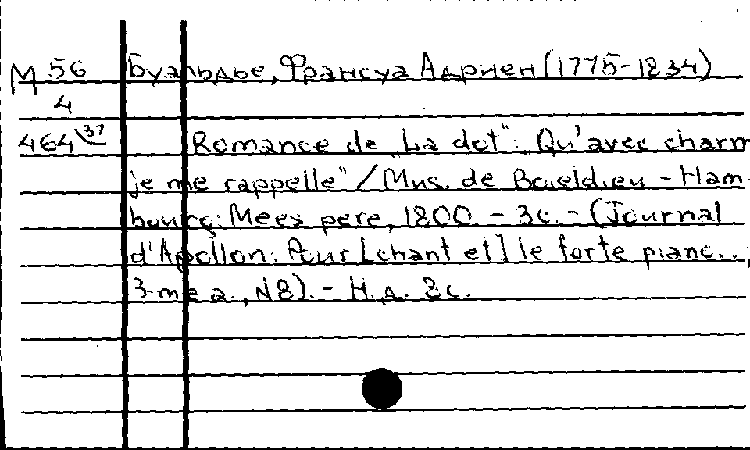 М 56 Буальдье, Франсуа Адриен (1775-1834)
4
464 37 Romance de „La dot": Qu'avec charm
je me rappelle" / Mus. de Boieldieu - Ham-
bourg: Mees pere, 1800 - 3c. - (Journal
d'Apollon: Pour [chant et] le forte piano..,
3-me a., N8). - Н.д. 8c.